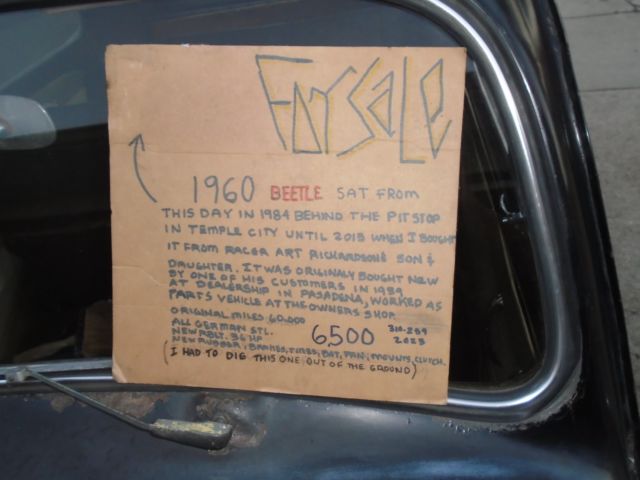 FOR SALE
1960 BEETLE SAT FROM
THIS DAY IN 1984 BEHIND THE PIT STOP
IN TEMPLE CITY UNTIL 2013 WHEN I BOUGHT
IT FROM RACER ART RICKARDSONS SON &
DAUGHTER. IT WAS ORIGINALY BOUGHT NEW
BY ONE OF HIS CUSTOMERS IN 1959
AT DEALERSHIP IN PASADENA, WORKED AS
PARTS VEHICLE AT THE OWNERS SHOP
ORIGINAL MILES 60,000
ALL GERMAN STL.
NEW RBLT. 36 HP 6,500 310-259
2023
NEW RUBBER, BRAKES, TIRES, BAT, PAN, MOUNTS, CLUTCH.
(I HAD TO DIG THIS ONE OUT OF THE GROUND)